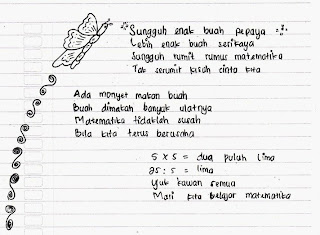 Sungguh enak buah pepaya
Lebih enak buah serikaya
Sungguh rumit rumus matematika
Tak serumit kisah cinta kita
Ada monyet makan buah
Buah dimakan banyak ulatnya
Matematika tidaklah susah
Bila kita terus berusaha
5 x 5 = dua puluh lima
25 : 5 = lima
Yuk kawan semua
Mari kita belajar matematika